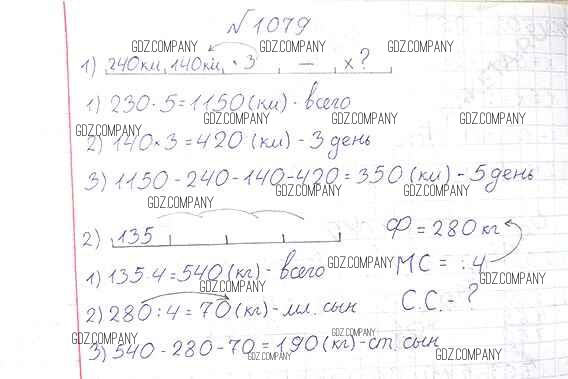 №1079
GDZ.COMPANY GDZ.COMPANY GDZ.COMPANY
1) 240км, 140км, ·3 — x?
1) 230·5=1150(км)- всего
GDZ.COMPANY GDZ.COMPANY GDZ.COMPANY
2) 140·3=420(км)-3 день
3) 1150-240-140-420=350(км)-5 день
GDZ.COMPANY GDZ.COMPANY GDZ.COMPANY
2) 135
Ф=280кг
1) 135·4=540(кг)- всего
GDZ.COMPANY
МС= :4
GDZ.COMPANY GDZ.COMPANY
2) 280:4=70(кг)-мл. сын
С.С.-?
GDZ.COMPANY GDZ.COMPANY
3) 540-280-70=190(кг)-ст. сын
GDZ.COMPANY GDZ.COMPANY